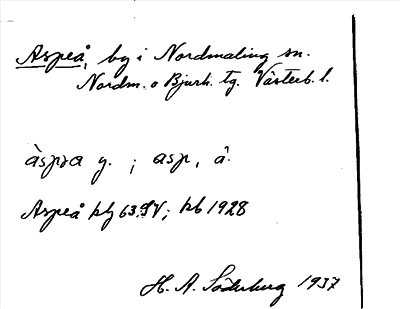 Aspeå, by i Nordmaling sn.
Nordm. o Bjurh. tg. Västerb. l.
àspɔa y. ; asp, å.
Aspeå hfl 63.SV; kb 1928
H. A. Söderberg 1937